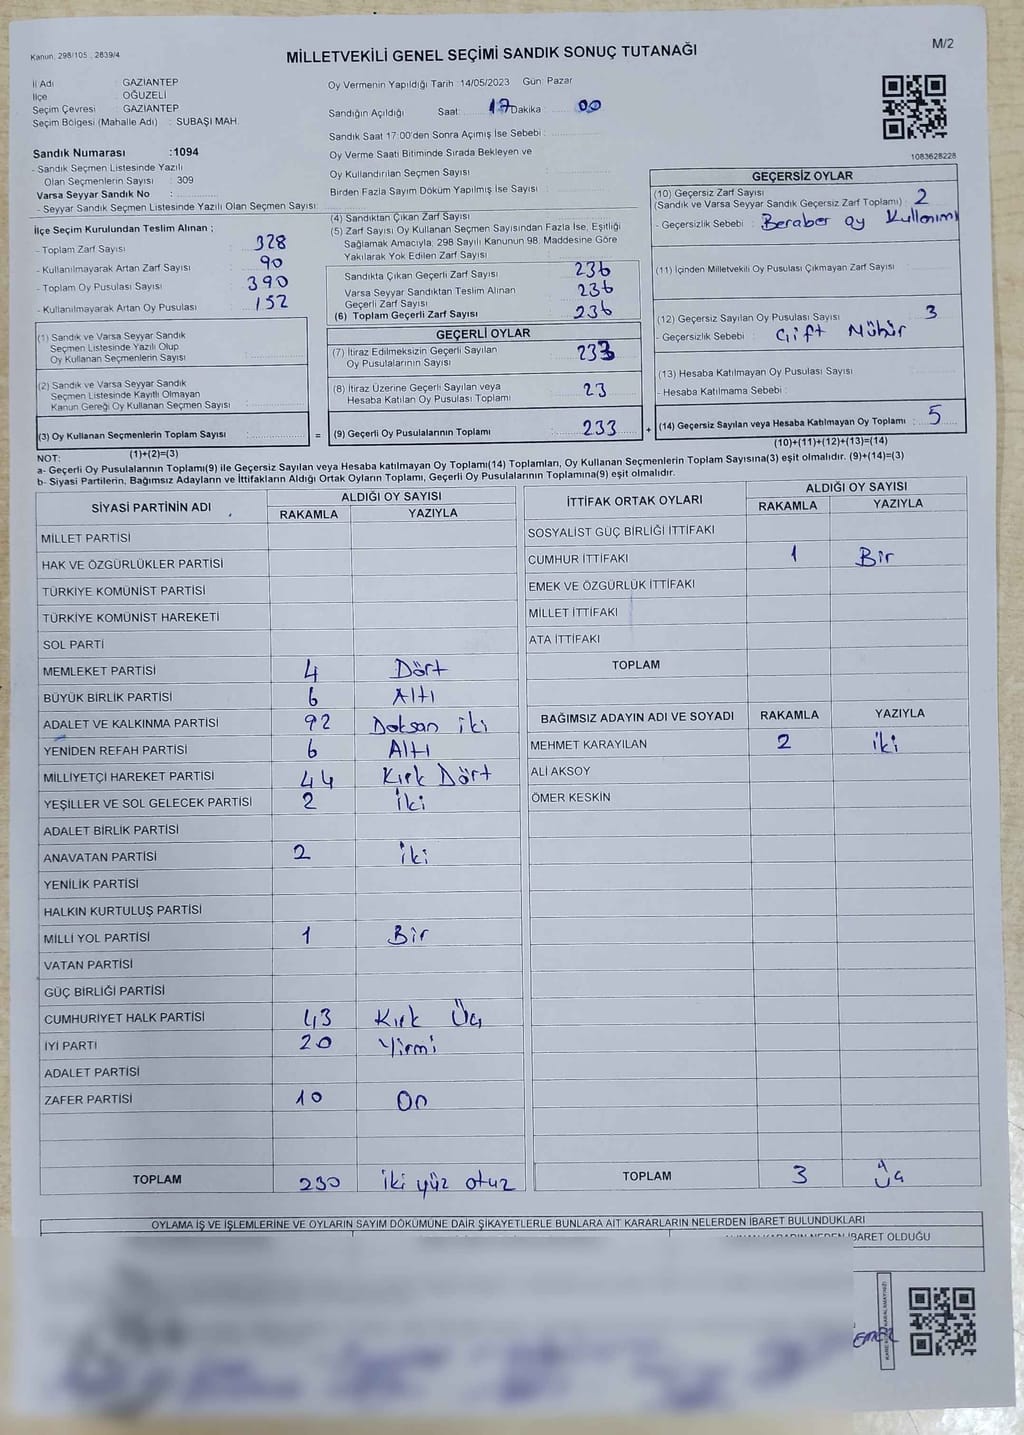 Kanun: 298/105 , 2839/4
MİLLETVEKİLİ GENEL SEÇİMİ SANDIK SONUÇ TUTANAĞI
M/2
İl Adı : GAZİANTEP
İlçe : OĞUZELİ
Seçim Çevresi : GAZİANTEP
Seçim Bölgesi (Mahalle Adı) : SUBAŞI MAH.
Oy Vermenin Yapıldığı Tarih :14/05/2023 Gün: Pazar
Sandığın Açıldığı Saat: 17 Dakika : 00
Sandık Saat 17:00'den Sonra Açımış İse Sebebi :
Sandık Numarası :1094
- Sandık Seçmen Listesinde Yazılı
Olan Seçmenlerin Sayısı : 309
Varsa Seyyar Sandık No :
- Seyyar Sandık Seçmen Listesinde Yazılı Olan Seçmen Sayısı:
Oy Verme Saati Bitiminde Sırada Bekleyen ve
Oy Kullandırılan Seçmen Sayısı :
Birden Fazla Sayım Döküm Yapılmış İse Sayısı :
1083628228
İlçe Seçim Kurulundan Teslim Alınan ;
- Toplam Zarf Sayısı : 328
- Kullanılmayarak Artan Zarf Sayısı : 90
- Toplam Oy Pusulası Sayısı : 390
- Kullanılmayarak Artan Oy Pusulası : 152
(1) Sandık ve Varsa Seyyar Sandık
Seçmen Listesinde Yazılı Olup
Oy Kullanan Seçmenlerin Sayısı :
(2) Sandık ve Varsa Seyyar Sandık
Seçmen Listesinde Kayıtlı Olmayan
Kanun Gereği Oy Kullanan Seçmen Sayısı :
(3) Oy Kullanan Seçmenlerin Toplam Sayısı :
(1)+(2)=(3)
(4) Sandıktan Çıkan Zarf Sayısı :
(5) Zarf Sayısı, Oy Kullanan Seçmen Sayısından Fazla İse, Eşitliği
Sağlamak Amacıyla, 298 Sayılı Kanunun 98. Maddesine Göre
Yakılarak Yok Edilen Zarf Sayısı :
Sandıkta Çıkan Geçerli Zarf Sayısı : 236
Varsa Seyyar Sandıktan Teslim Alınan
Geçerli Zarf Sayısı : 236
(6) Toplam Geçerli Zarf Sayısı : 236
GEÇERLİ OYLAR
(7) İtiraz Edilmeksizin Geçerli Sayılan
Oy Pusulalarının Sayısı : 233
(8) İtiraz Üzerine Geçerli Sayılan veya
Hesaba Katılan Oy Pusulası Toplamı : 23
= (9) Geçerli Oy Pusulalarının Toplamı : 233 +
GEÇERSİZ OYLAR
(10) Geçersiz Zarf Sayısı
(Sandık ve Varsa Seyyar Sandık Geçersiz Zarf Toplamı) : 2
- Geçersizlik Sebebi : Beraber oy Kullanımı
(11) İçinden Milletvekili Oy Pusulası Çıkmayan Zarf Sayısı :
(12) Geçersiz Sayılan Oy Pusulası Sayısı : 3
- Geçersizlik Sebebi : Çift Mühür
(13) Hesaba Katılmayan Oy Pusulası Sayısı :
- Hesaba Katılmama Sebebi :
(14) Geçersiz Sayılan veya Hesaba Katılmayan Oy Toplamı : 5
(10)+(11)+(12)+(13)=(14)
NOT:
a- Geçerli Oy Pusulalarının Toplamı(9) ile Geçersiz Sayılan veya Hesaba katılmayan Oy Toplamı(14) Toplamları, Oy Kullanan Seçmenlerin Toplam Sayısına(3) eşit olmalıdır. (9)+(14)=(3)
b- Siyasi Partilerin, Bağımsız Adayların ve İttifakların Aldığı Ortak Oyların Toplamı, Geçerli Oy Pusulalarının Toplamına(9) eşit olmalıdır.
SİYASİ PARTİNİN ADI
ALDIĞI OY SAYISI
RAKAMLA YAZIYLA
MİLLET PARTİSİ
HAK VE ÖZGÜRLÜKLER PARTİSİ
TÜRKİYE KOMÜNİST PARTİSİ
TÜRKİYE KOMÜNİST HAREKETİ
SOL PARTİ
MEMLEKET PARTİSİ 4 Dört
BÜYÜK BİRLİK PARTİSİ 6 Altı
ADALET VE KALKINMA PARTİSİ 92 Doksan iki
YENİDEN REFAH PARTİSİ 6 Altı
MİLLİYETÇİ HAREKET PARTİSİ 44 Kırk Dört
YEŞİLLER VE SOL GELECEK PARTİSİ 2 İki
ADALET BİRLİK PARTİSİ
ANAVATAN PARTİSİ 2 iki
YENİLİK PARTİSİ
HALKIN KURTULUŞ PARTİSİ
MİLLİ YOL PARTİSİ 1 Bir
VATAN PARTİSİ
GÜÇ BİRLİĞİ PARTİSİ
CUMHURİYET HALK PARTİSİ 43 Kırk Üç
İYİ PARTİ 20 Yirmi
ADALET PARTİSİ
ZAFER PARTİSİ 10 On
TOPLAM 230 iki yüz otuz
İTTİFAK ORTAK OYLARI
ALDIĞI OY SAYISI
RAKAMLA YAZIYLA
SOSYALİST GÜÇ BİRLİĞİ İTTİFAKI
CUMHUR İTTİFAKI 1 Bir
EMEK VE ÖZGÜRLÜK İTTİFAKI
MİLLET İTTİFAKI
ATA İTTİFAKI
TOPLAM
BAĞIMSIZ ADAYIN ADI VE SOYADI RAKAMLA YAZIYLA
MEHMET KARAYILAN 2 iki
ALİ AKSOY
ÖMER KESKİN
TOPLAM 3 Üç
OYLAMA İŞ VE İŞLEMLERİNE VE OYLARIN SAYIM DÖKÜMÜNE DAİR ŞİKAYETLERLE BUNLARA AİT KARARLARIN NELERDEN İBARET BULUNDUKLARI
İBARET OLDUĞU